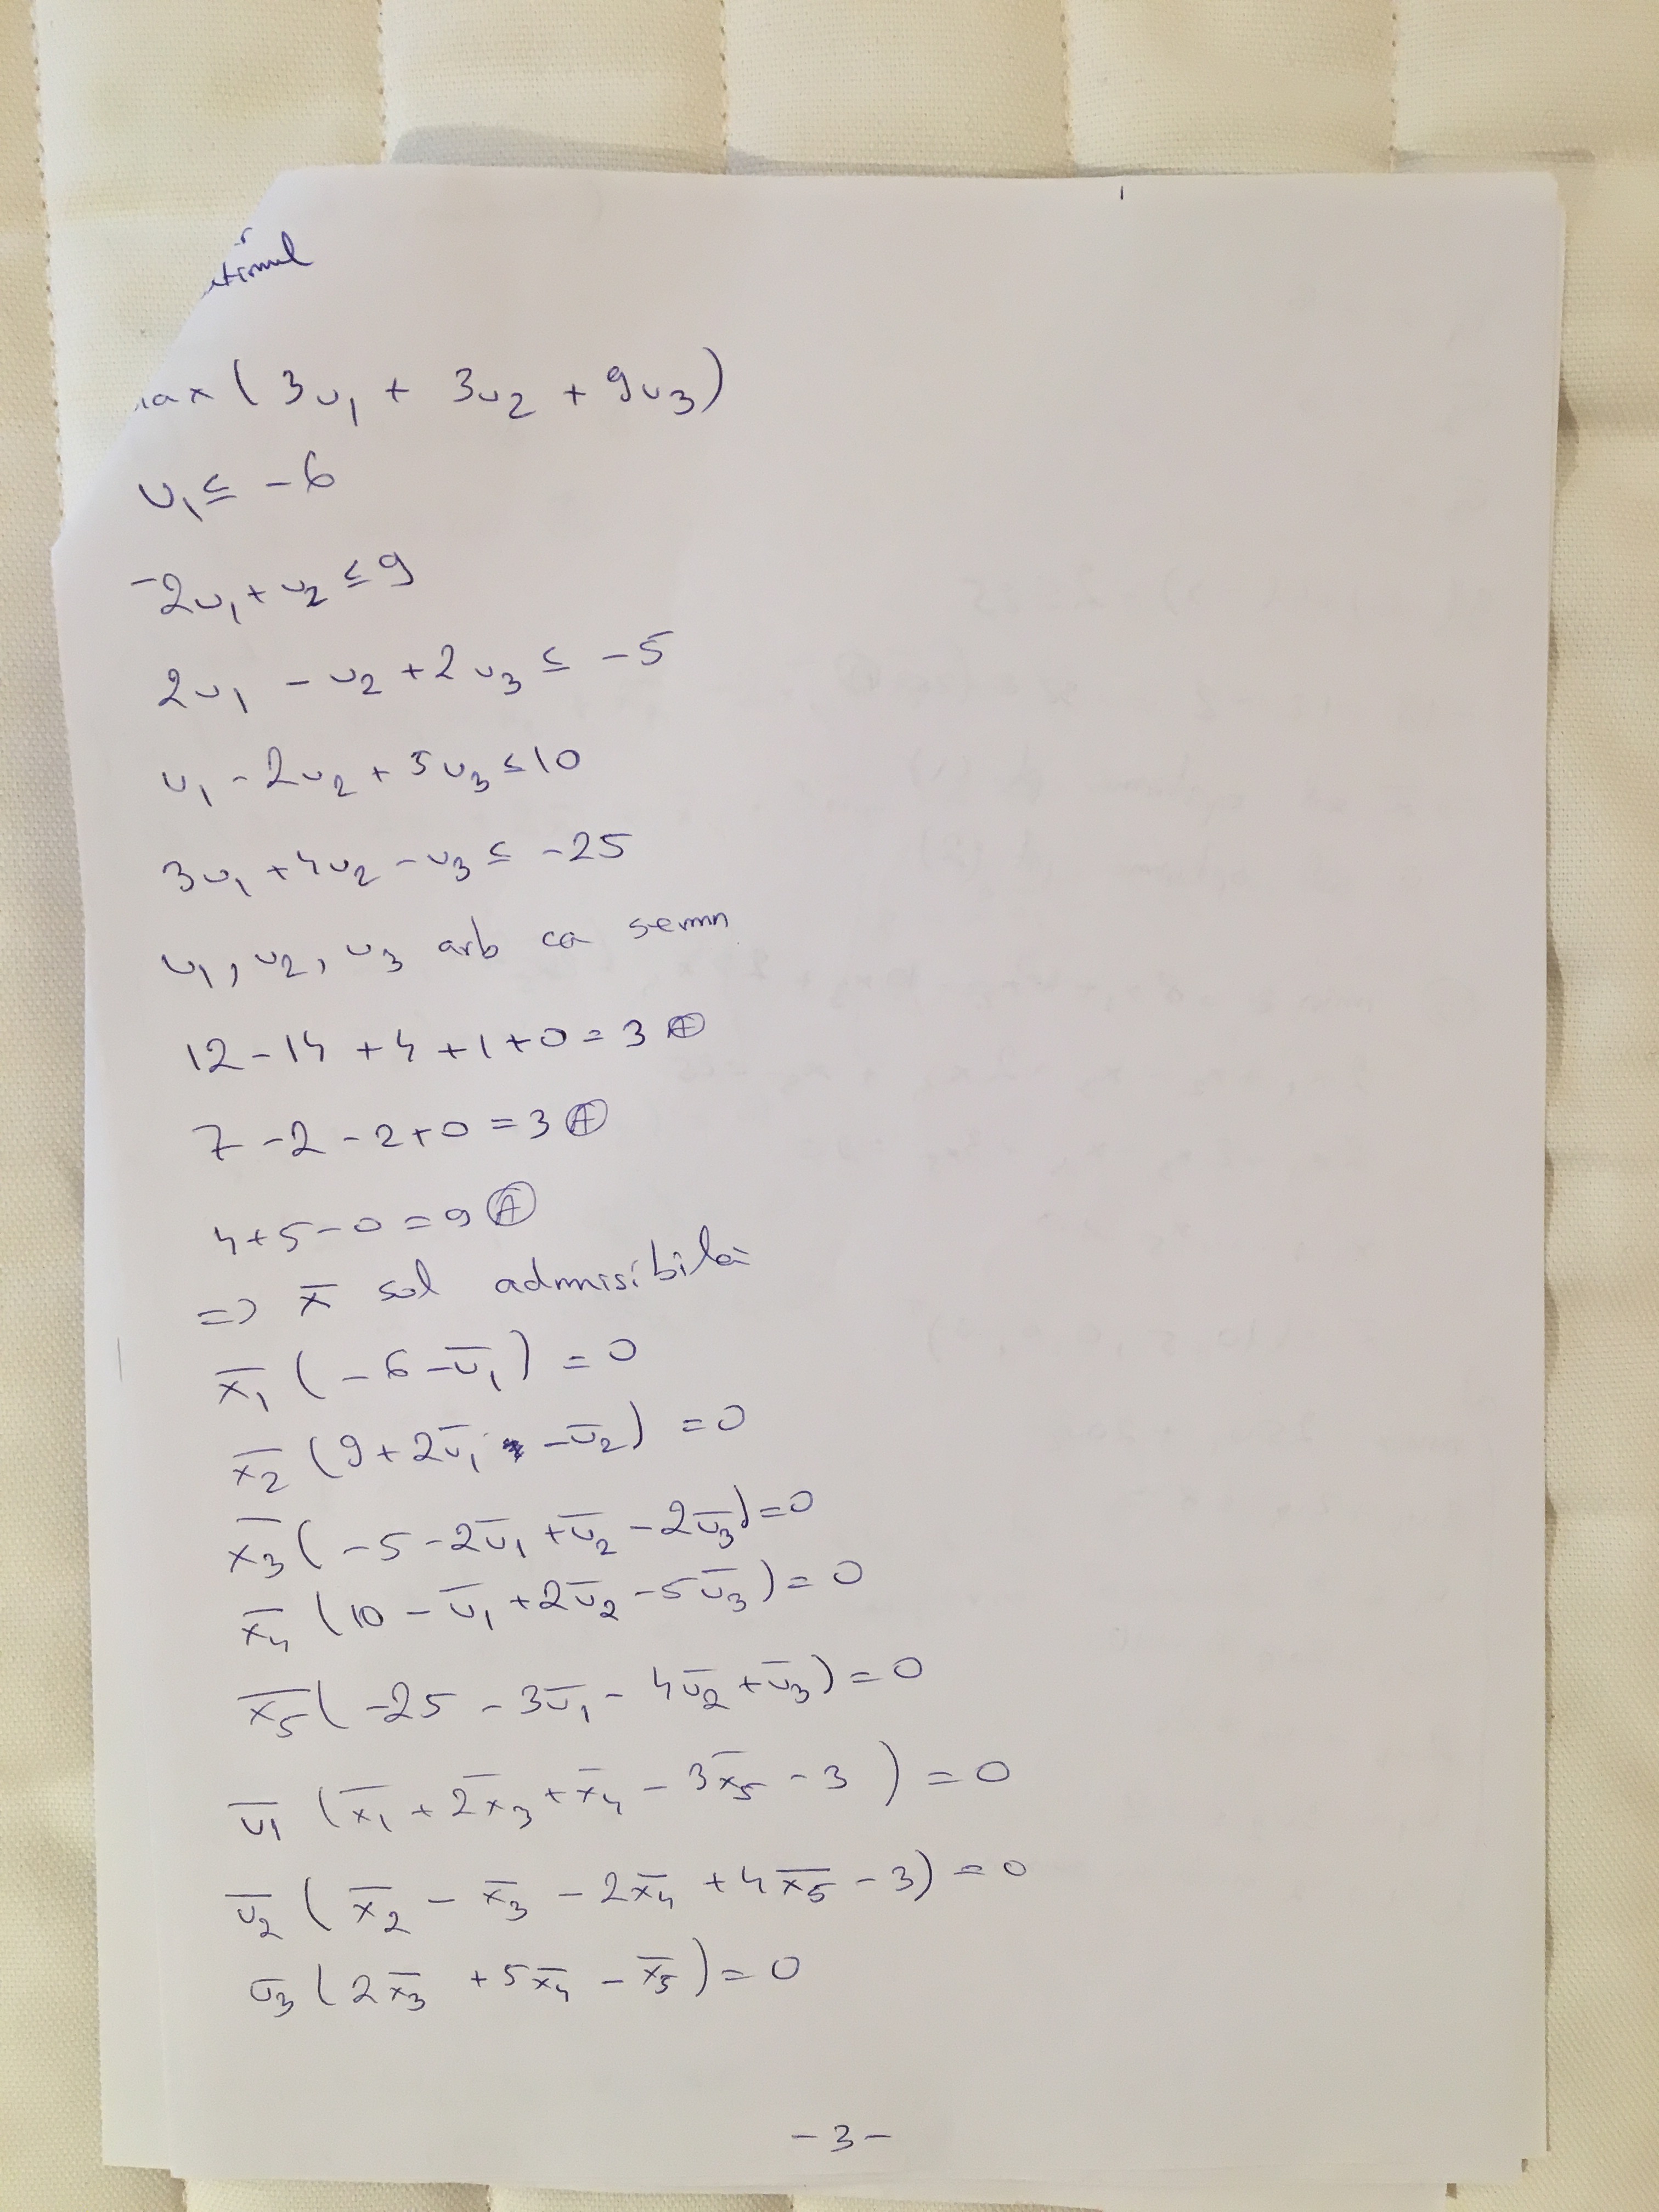 max (3u₁ + 3u₂ + 9u₃)
u₁ ≤ -6
-2u₁ + u₂ ≤ 9
2u₁ - u₂ + 2u₃ ≤ -5
u₁ - 2u₂ + 5u₃ ≤ 10
3u₁ + 4u₂ - u₃ ≤ -25
u₁, u₂, u₃ arb ca semn
12 - 14 + 4 + 1 + 0 = 3 Ⓐ
7 - 2 - 2 + 0 = 3 Ⓐ
4 + 5 - 0 = 9 Ⓐ
=> x̅ sol admisibilă
x̅₁ (-6 - u̅₁) = 0
x̅₂ (9 + 2u̅₁ - u̅₂) = 0
x̅₃ (-5 - 2u̅₁ + u̅₂ - 2u̅₃) = 0
x̅₄ (10 - u̅₁ + 2u̅₂ - 5u̅₃) = 0
x̅₅ (-25 - 3u̅₁ - 4u̅₂ + u̅₃) = 0
u̅₁ (x̅₁ + 2x̅₃ + x̅₄ - 3x̅₅ - 3) = 0
u̅₂ (x̅₂ - x̅₃ - 2x̅₄ + 4x̅₅ - 3) = 0
u̅₃ (2x̅₃ + 5x̅₄ - x̅₅) = 0
- 3 -